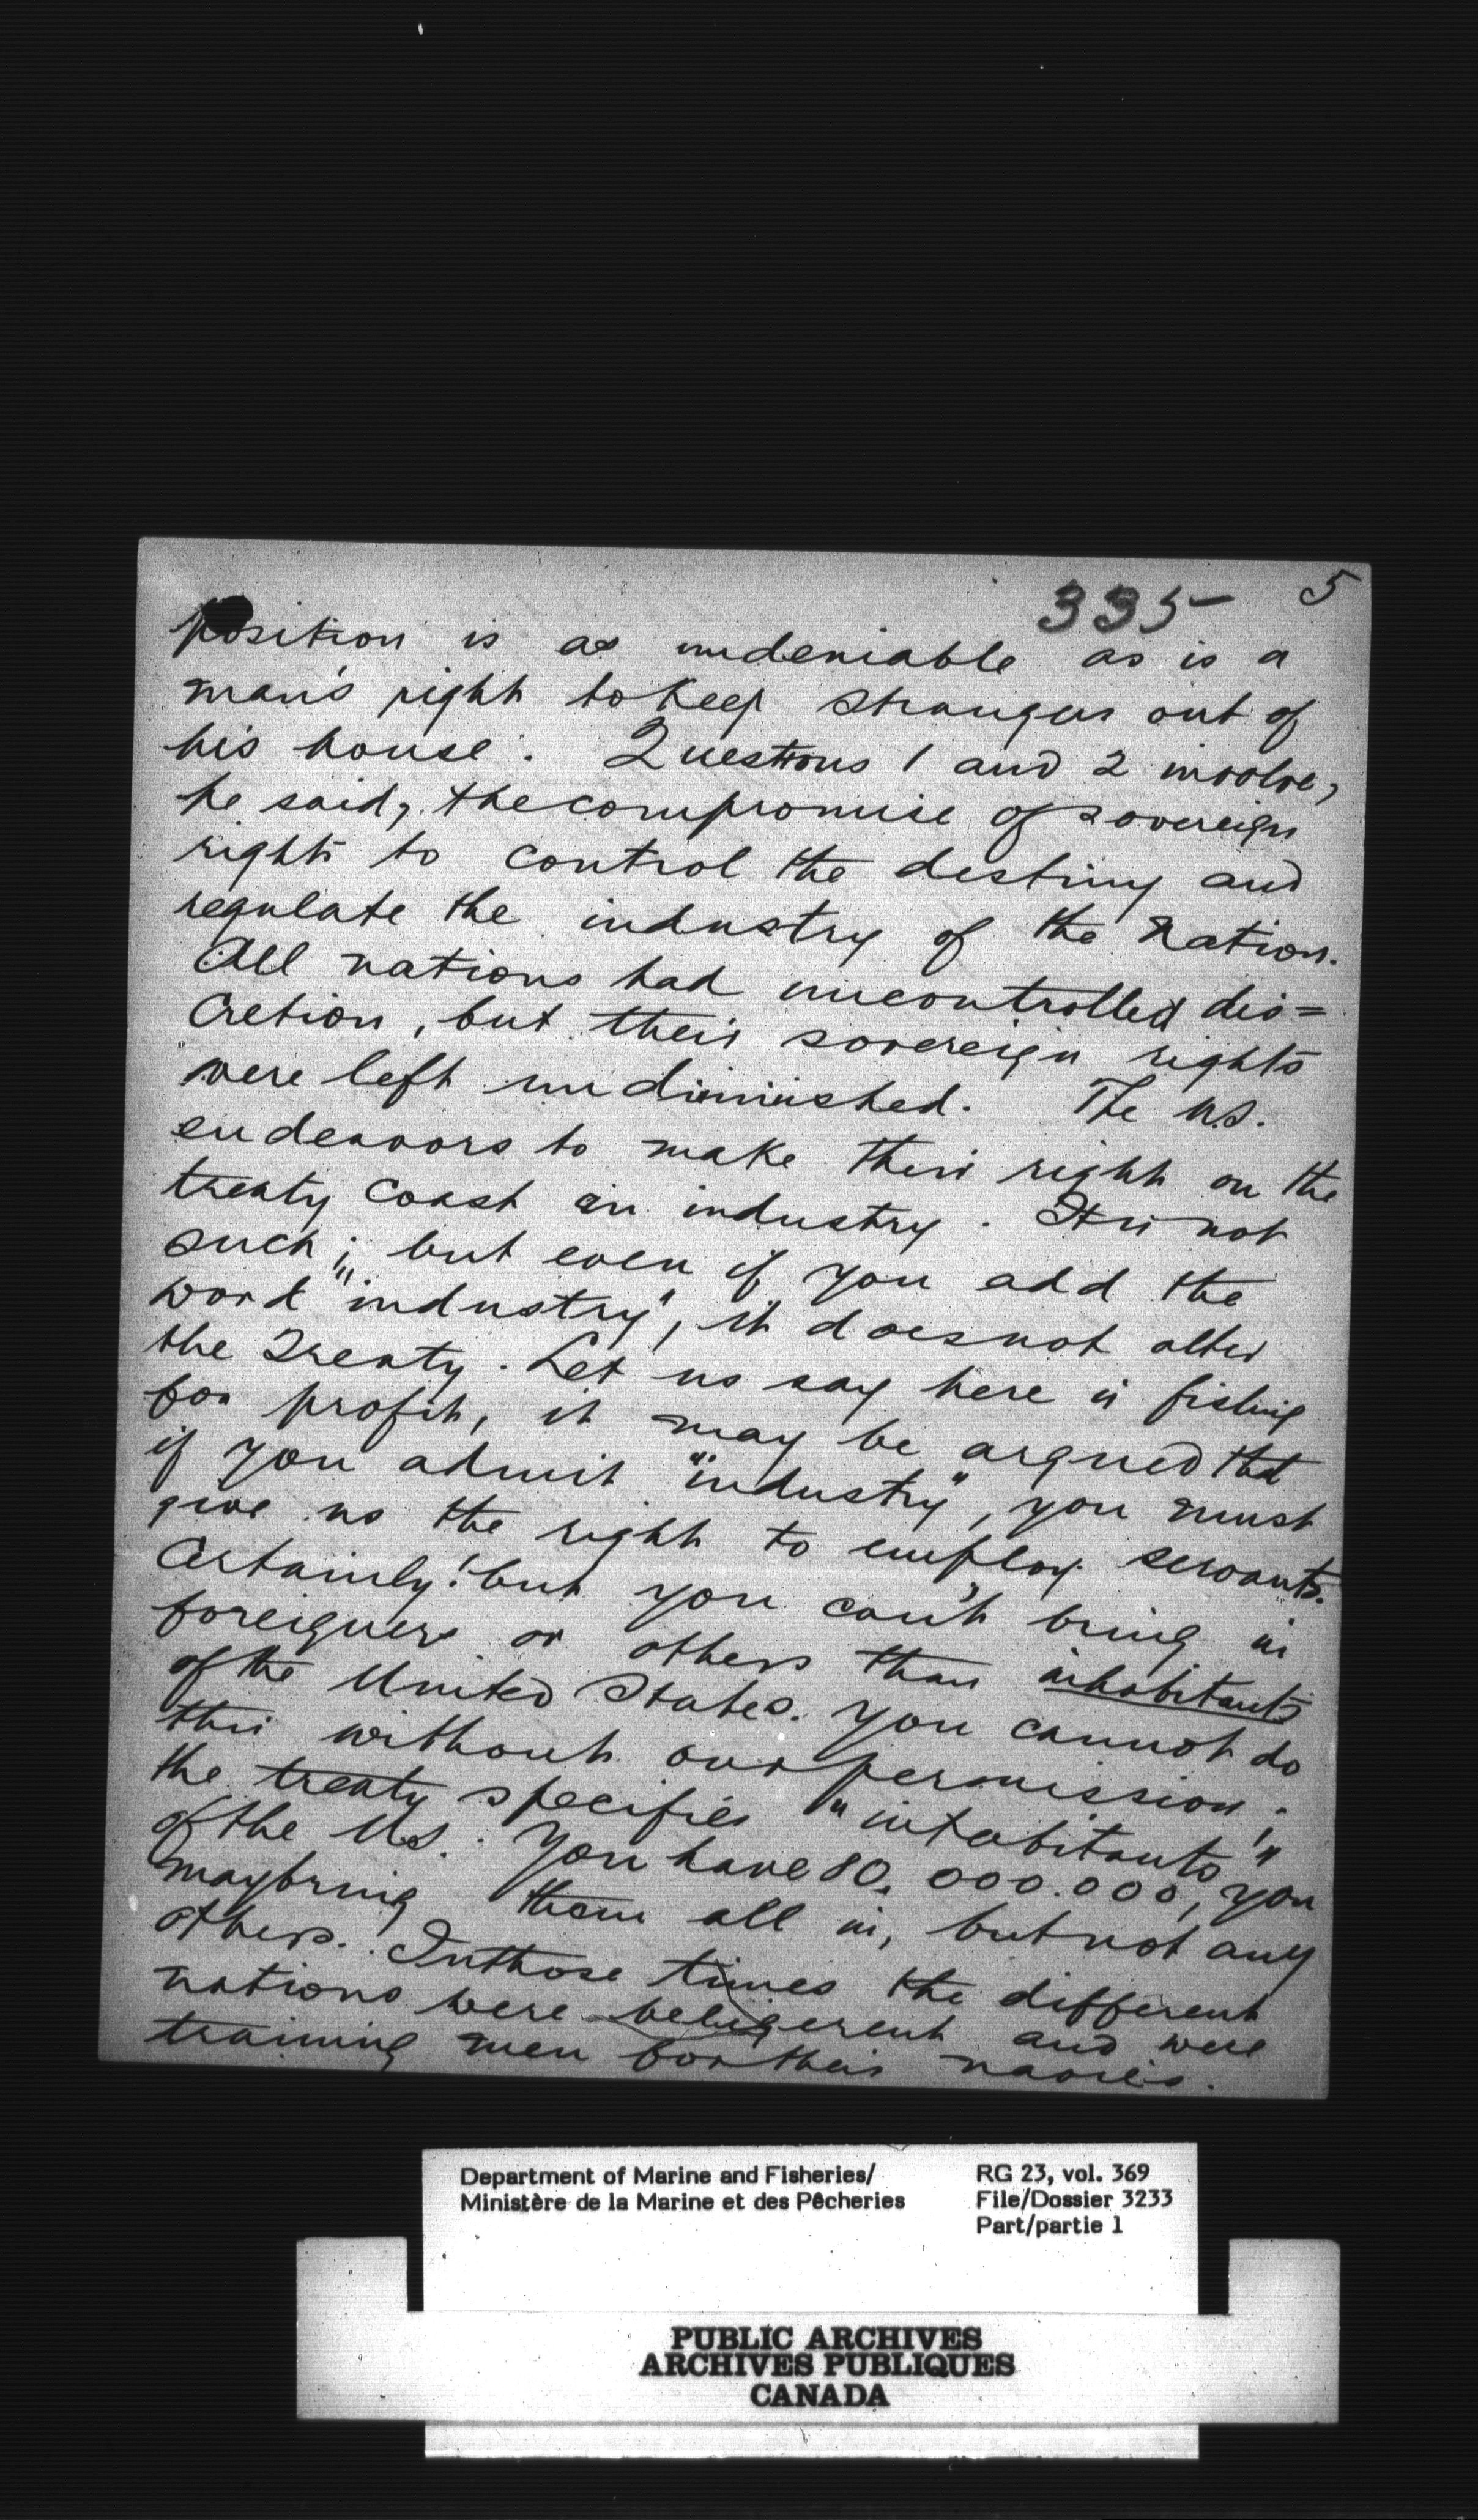 335 5
position is as undeniable as is a
man's right to keep strangers out of
his house. Questions 1 and 2 involve,
he said, the compromise of sovereign
rights to control the destiny and
regulate the industry of the nation.
All nations had uncontrolled dis=
cretion, but their sovereign rights
were left undiminished. The U.S.
endeavors to make their right on the
treaty coast an industry. It is not
such; but even if you add the
word "industry", it does not alter
the Treaty. Let us say here is fishing
for profit, it may be argued that
if you admit "industry", you must
give us the right to employ servants.
Certainly! but you can't bring in
foreigners or others than inhabitants
of the United States. You cannot do
this without our permission;
the treaty specifies "inhabitants"
of the U.S. You have 80,000.000, you
may bring them all in, but not any
others. In those times the different
nations were beligerent and were
training men for their navies.
Department of Marine and Fisheries/
Ministère de la Marine et des Pêcheries
RG 23, vol. 369
File/Dossier 3233
Part/partie 1
PUBLIC ARCHIVES
ARCHIVES PUBLIQUES
CANADA